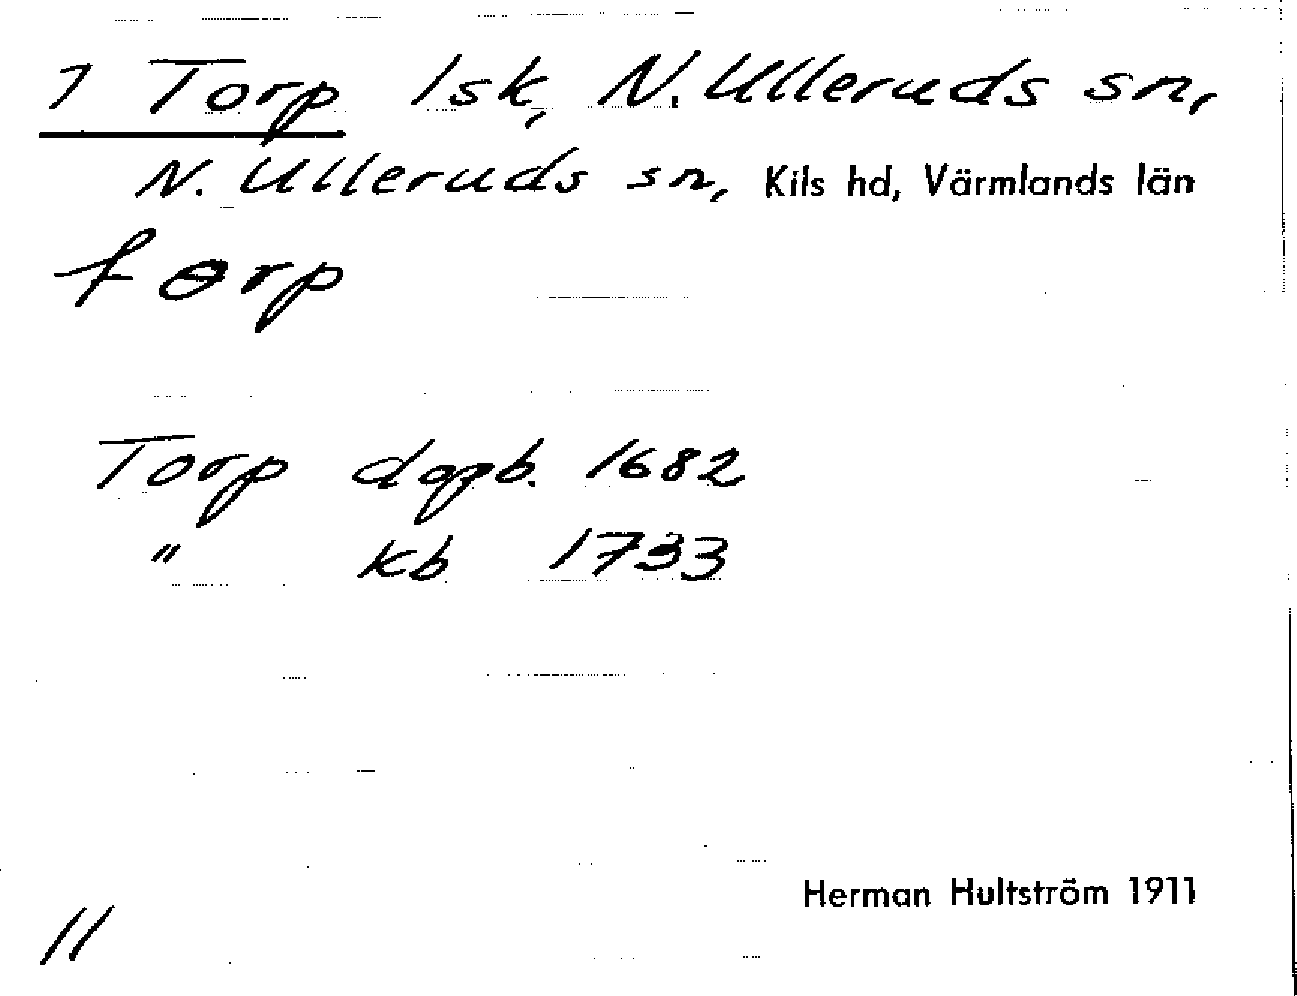 1 Torp lsk, N. Ulleruds sn,
N. Ulleruds sn, Kils hd, Värmlands län
tɵrp
Torp dgpb. 1682
" kb 1733
Herman Hultström 1911
11